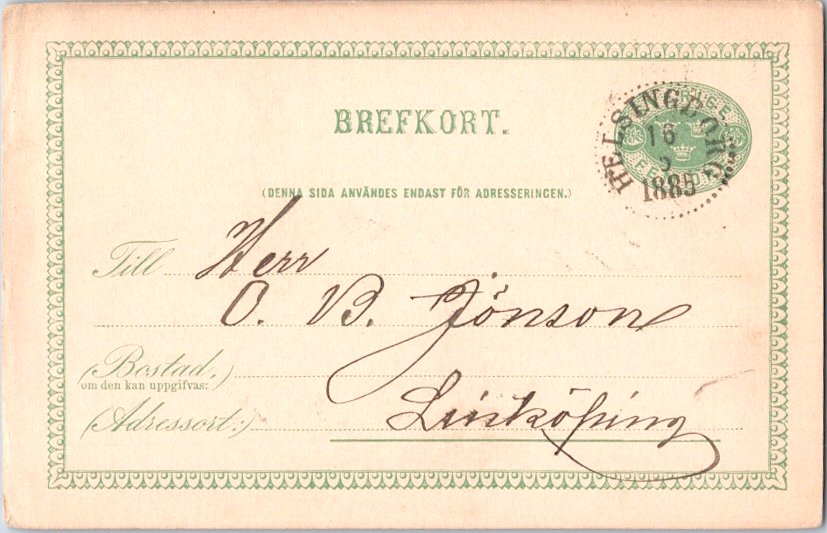 BREFKORT.
HELSINGBORG
16
1885
(DENNA SIDA ANVÄNDES ENDAST FÖR ADRESSERINGEN.)
Till Herr
O. B. Jönson
(Bostad.)
om den kan uppgifvas:
(Adressort:) Linköping